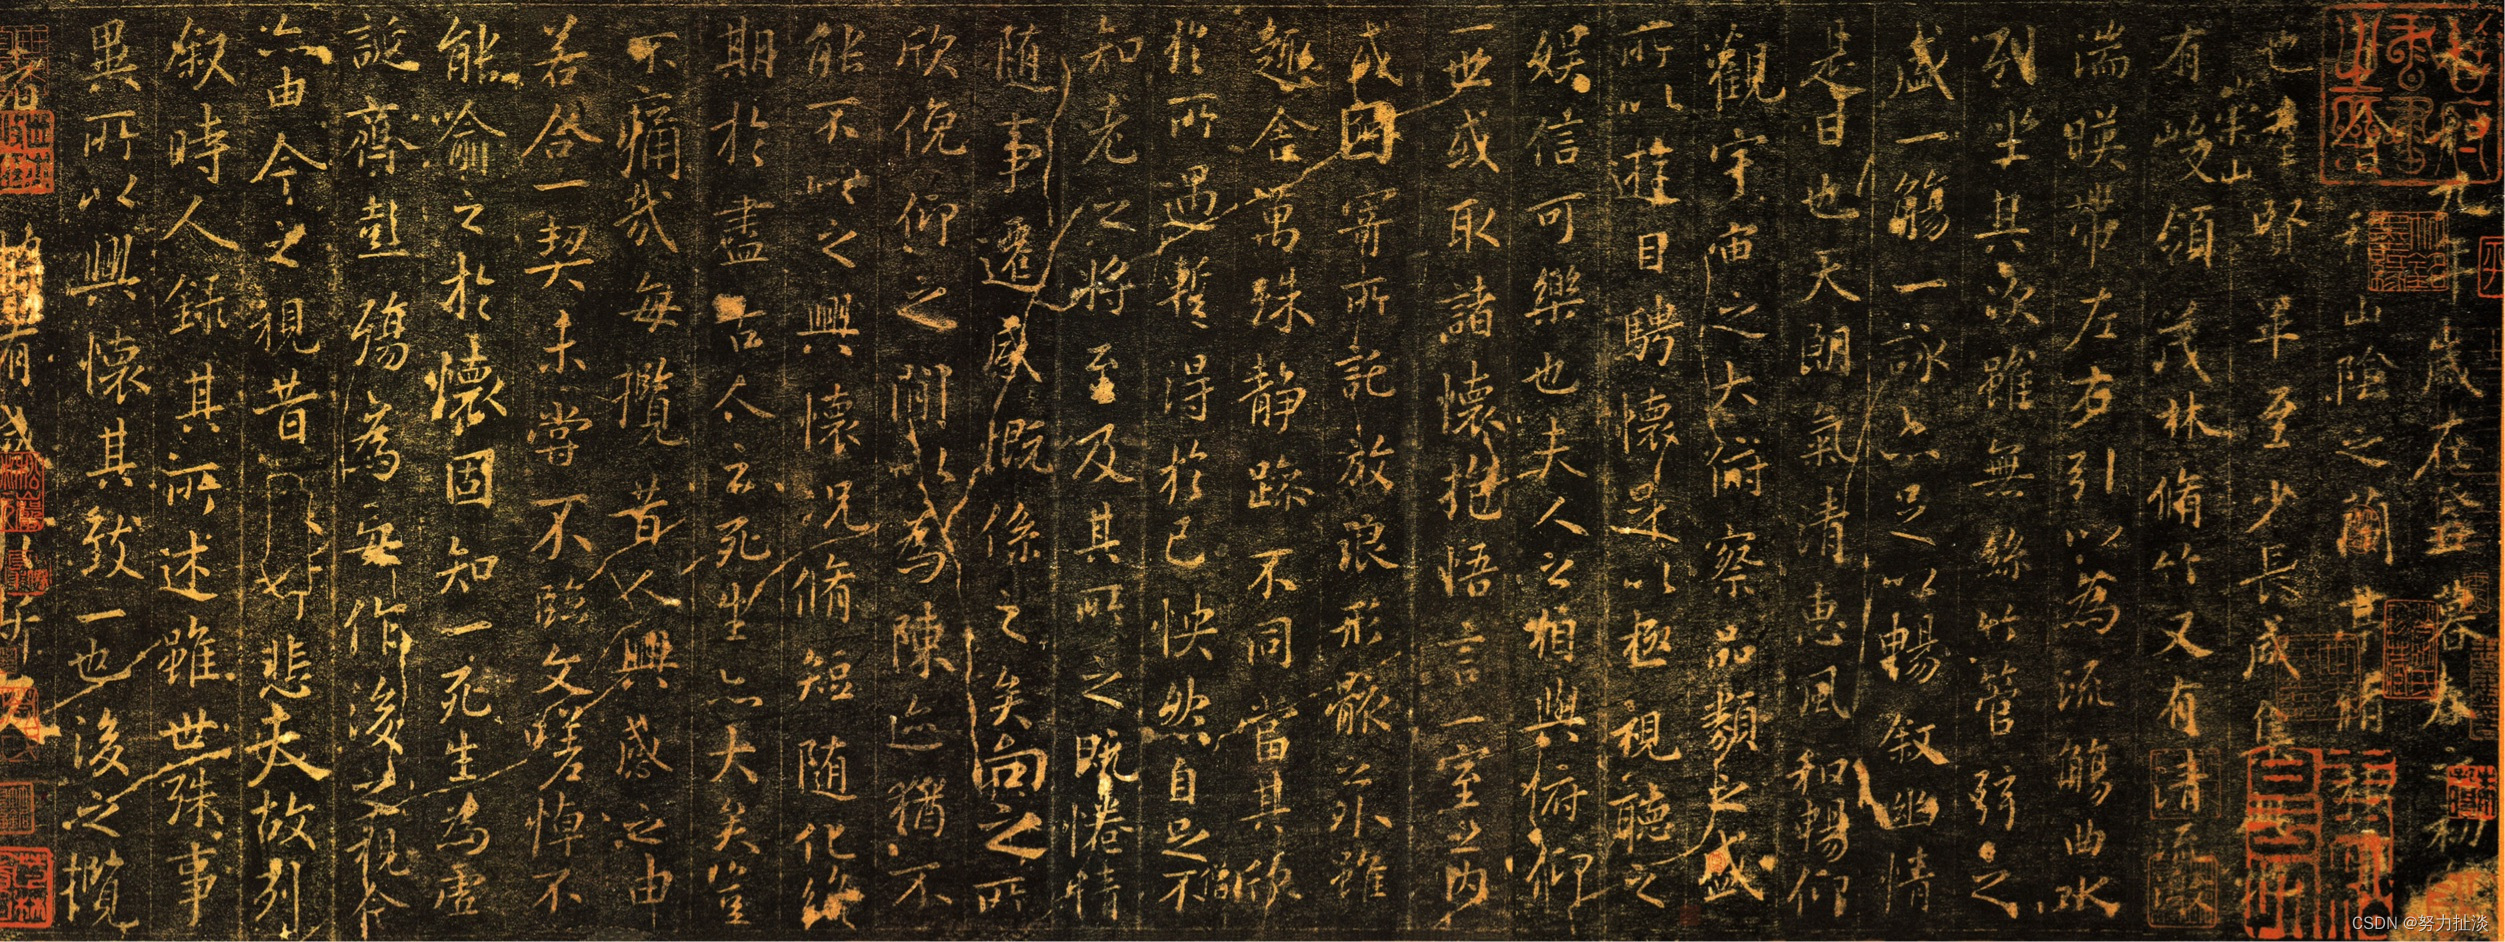 永和九年歲在癸丑暮春之初
會稽山陰之蘭亭脩稧
也羣賢畢至少長咸集
有崇山峻領茂林脩竹又有清流激
湍暎帶左右引以為流觴曲水
列坐其次雖無絲竹管弦之
盛一觴一詠亦足以暢敘幽情
是日也天朗氣清惠風和暢仰
觀宇宙之大俯察品類之盛
所以遊目騁懷足以極視聽之
娛信可樂也夫人之相與俯仰
一世或取諸懷抱悟言一室之內
或因寄所託放浪形骸之外雖
趣舍萬殊静躁不同當其欣
於所遇暫得於己怏然自足不
知老之將至及其所之既惓情
随事遷感慨係之矣向之所
欣俛仰之閒以為陳迹猶不
能不以之興懷況脩短随化終
期於盡古人云死生亦大矣豈
不痛哉每攬昔人興感之由
若合一契未嘗不臨文嗟悼不
能喻之於懷固知一死生為虛
誕齊彭殤為妄作後之視今
亦由今之視昔悲夫故列
敘時人錄其所述雖世殊事
異所以興懷其致一也後之攬
者有感斯文
CSDN @努力扯淡